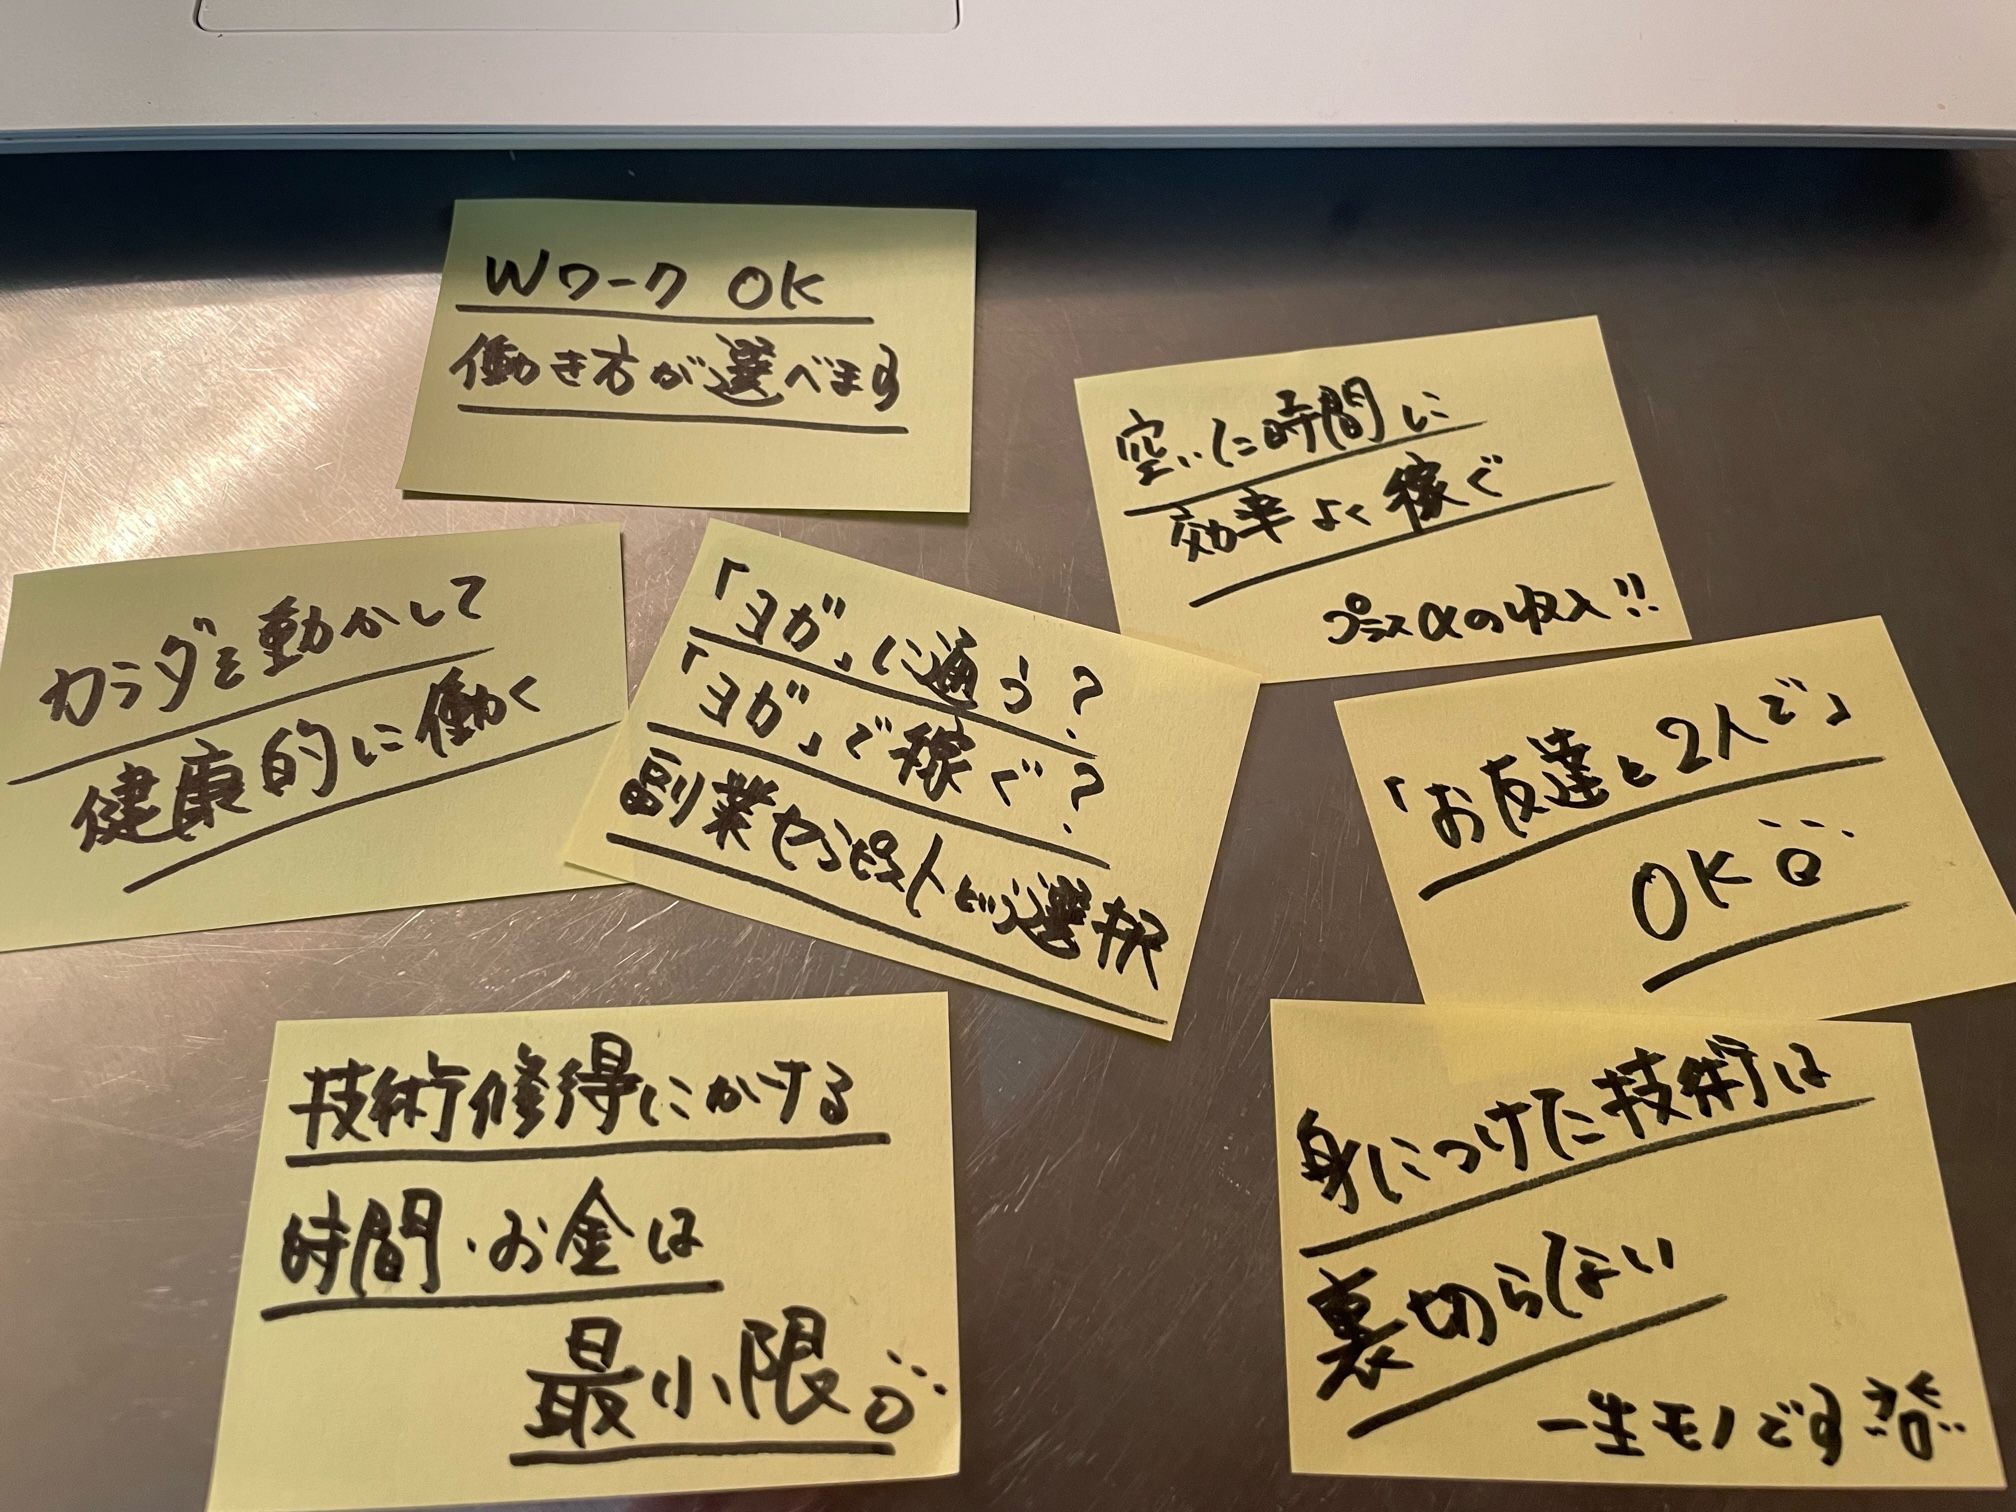 Wワーク OK
働き方が選べます
空いた時間に
効率よく稼ぐ
プラスαの収入!!
カラダを動かして
健康的に働く
「ヨガ」に通う?
「ヨガ」で稼ぐ?
副業セラピストどう選択
「お友達と2人で」
OK
技術修得にかける
時間・お金は
最小限
身につけた技術は
裏切らない
一生モノです